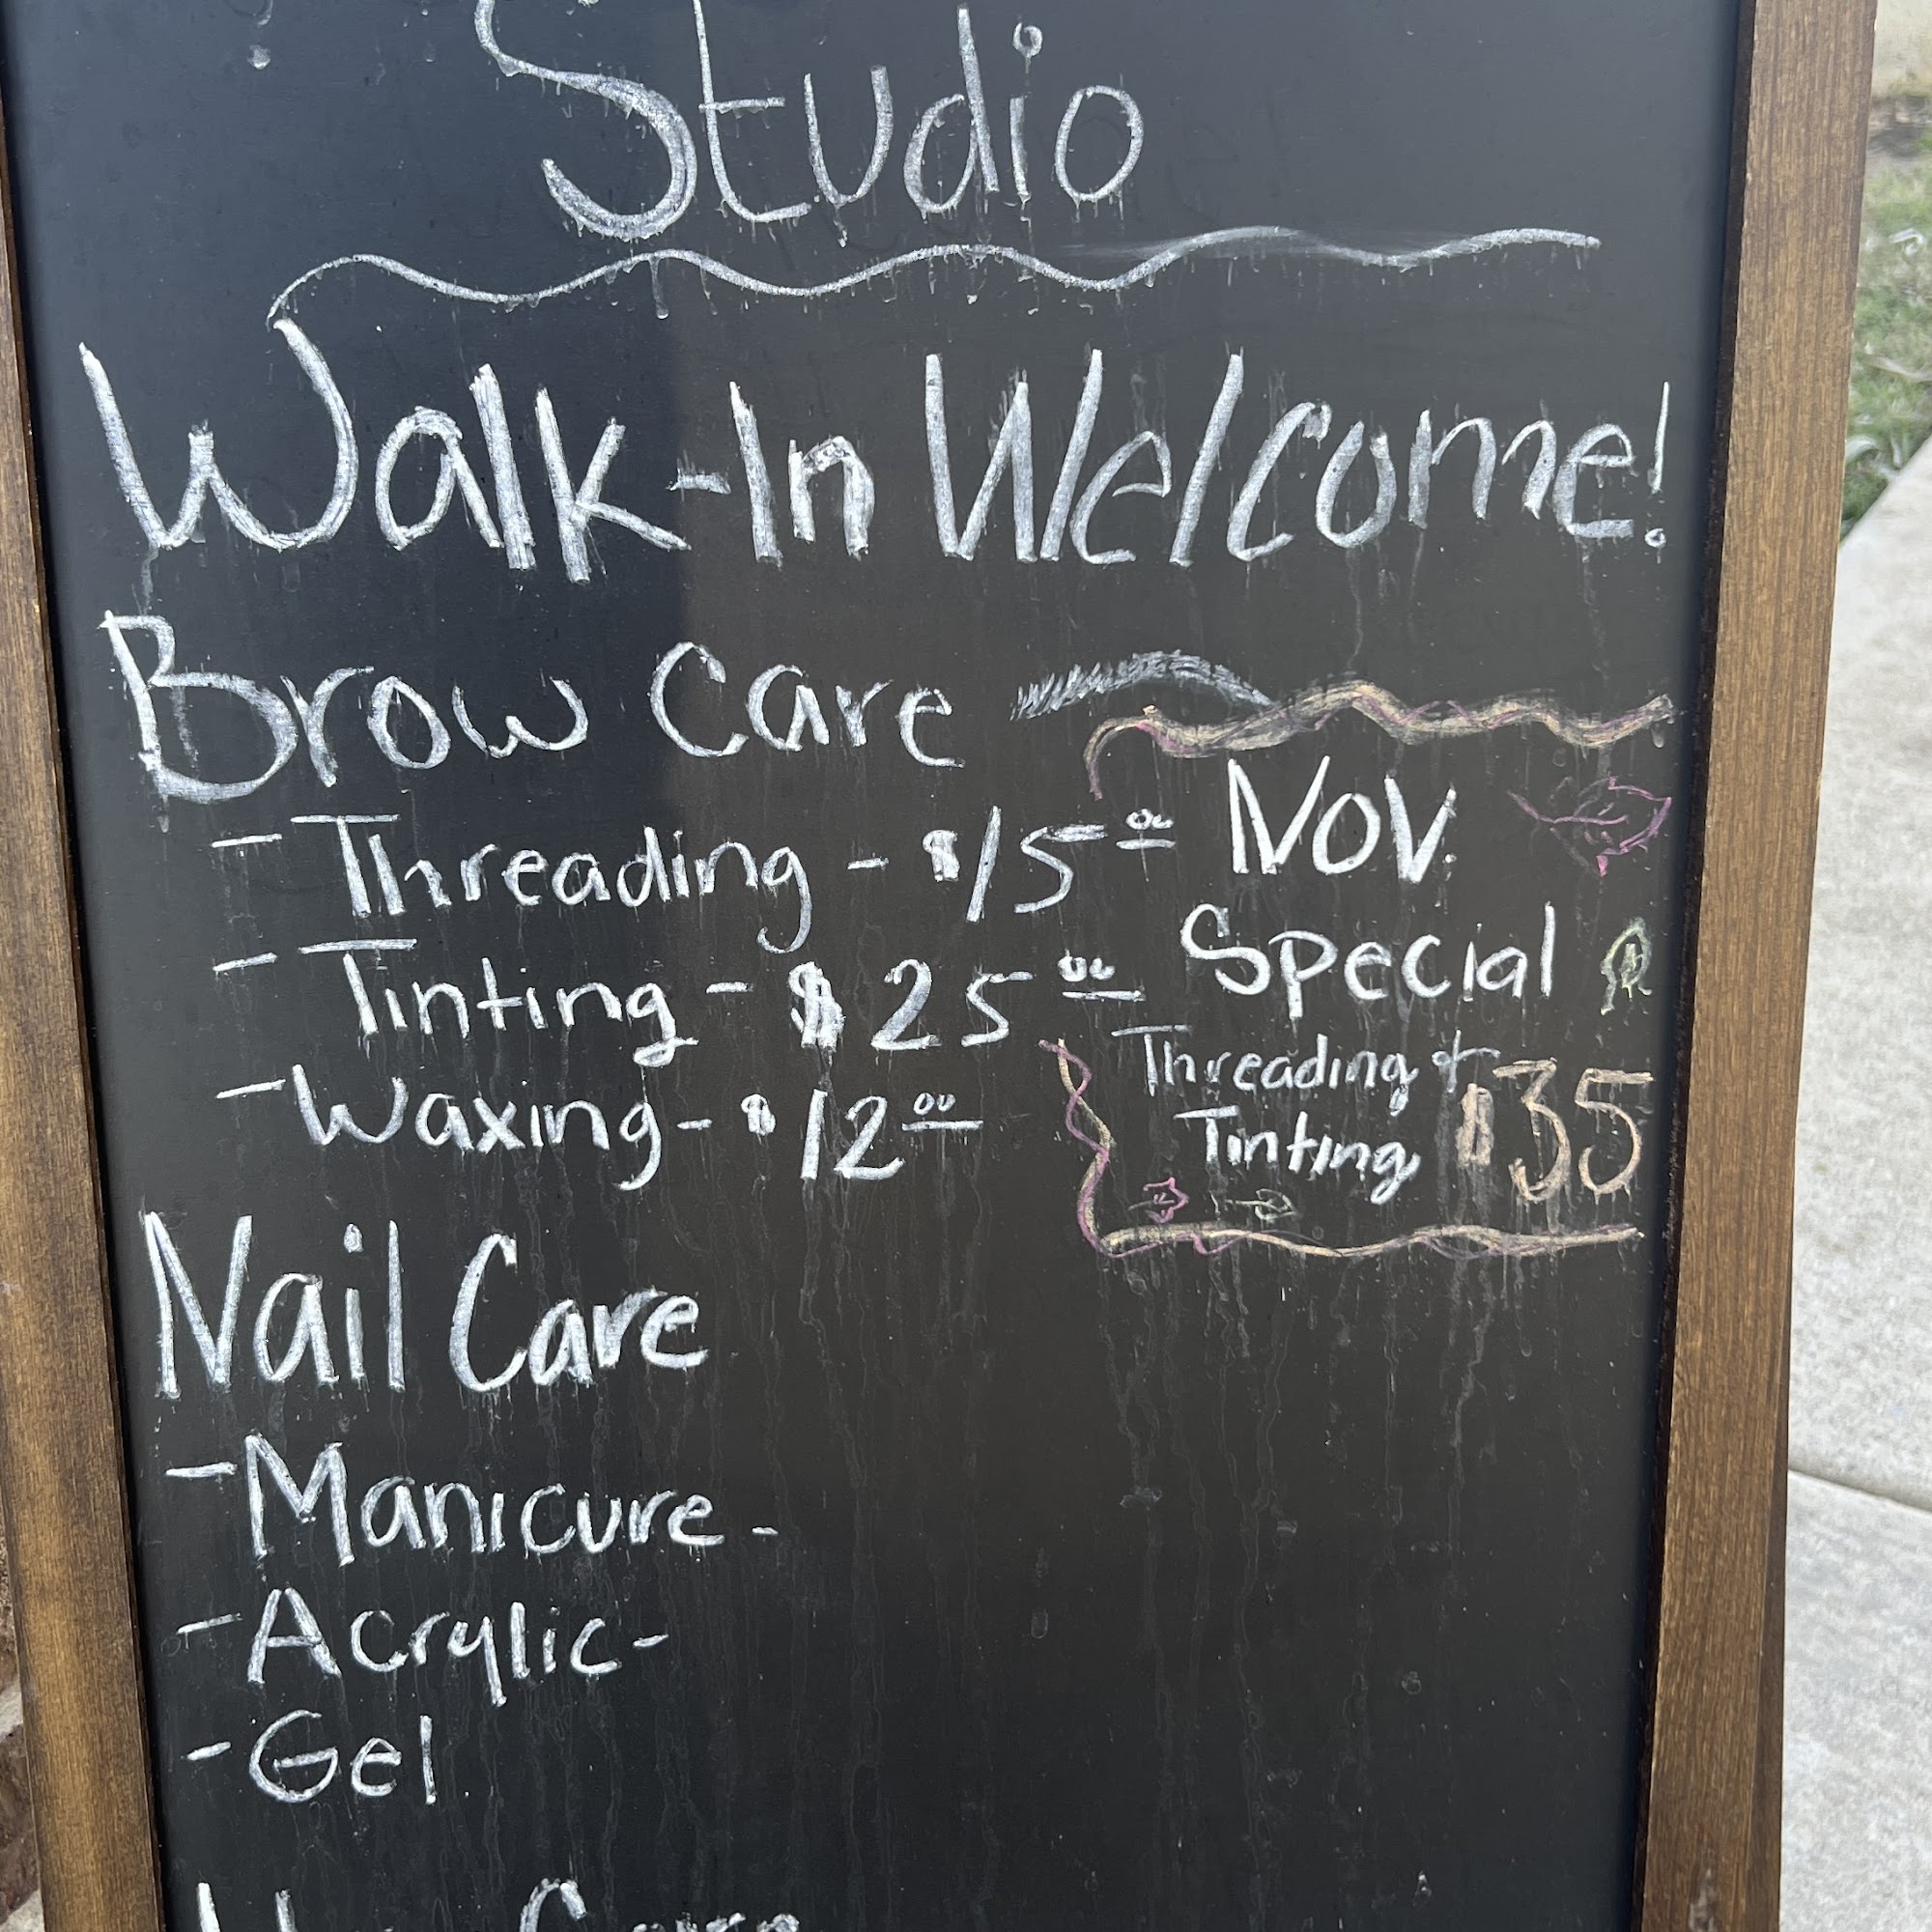 Studio
Walk-In Welcome!
Brow Care
- Threading - $15.00
- Tinting - $25.00
- Waxing - $12.00
Nov.
Special
Threading +
Tinting $35
Nail Care
- Manicure -
- Acrylic -
- Gel
Care